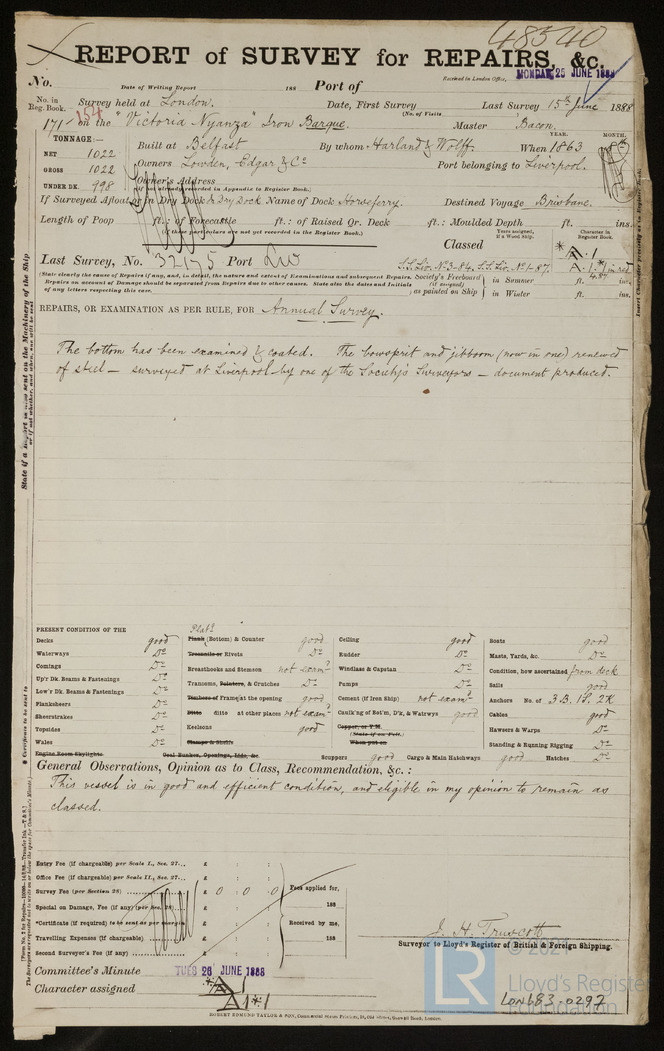 48540
REPORT of SURVEY for REPAIRS, &c.
Received in London Office, MONDAY 25 JUNE 1888
No. Date of Writing Report 188 Port of
No. in Reg. Book. Survey held at London. Date, First Survey Last Survey 15th June 1888
(No. of Visits
154
171 on the "Victoria Nyanza" Iron Barque. Master Bacon.
TONNAGE:— YEAR. MONTH.
Built at Belfast By whom Harland & Wolff. When 1863
NET 1022
GROSS 1022 Owners Lowden, Edgar & Co Port belonging to Liverpool.
UNDER DK. 998 Owner's Address
(If not already recorded in Appendix to Register Book.)
If Surveyed Afloat or in Dry Dock Dry Dock Name of Dock Horseferry. Destined Voyage Brisbane.
Length of Poop ft.: of Forecastle ft.: of Raised Qr. Deck ft.: Moulded Depth ft. ins.
(If these particulars are not yet recorded in the Register Book.)
Years assigned, if a Wood Ship. Character in Register Book.
Classed
Last Survey, No. 32175 Port S.S. Liv. No 3-84. S.S. Liv. No 1-87. A.1. in red
4,87
(State clearly the cause of Repairs if any, and, in detail, the nature and extent of Examinations and subsequent Repairs.
Repairs on account of Damage should be separated from Repairs due to other causes. State also the dates and Initials
of any letters respecting this case.
Society's Freeboard (if assigned) as painted on Ship in Summer ft. ins.
in Winter ft. ins.
REPAIRS, OR EXAMINATION AS PER RULE, FOR Annual Survey.
The bottom has been examined & coated. The bowsprit and jibboom (now in one) renewed
of steel — surveyed at Liverpool by one of the Society's Surveyors — document produced.
PRESENT CONDITION OF THE
Decks good
Waterways Do
Comings Do
Up'r Dk. Beams & Fastenings Do
Low'r Dk. Beams & Fastenings Do
Planksheers Do
Sheerstrakes Do
Topsides Do
Wales Do
Engine Room Skylights
Platg
Plank (Bottom) & Counter good
Treenails or Rivets Do
Breasthooks and Stemson not exam?
Transoms, Pointers, & Crutches Do
Timbers or Frame at the opening good
Ditto ditto at other places not exam?
Keelsons good
Clamps & Shelfs
Coal Bunker, Openings, Lids, &c
Ceiling good
Rudder Do
Windlass & Capstan Do
Pumps Do
Cement (if Iron Ship) not exam?
Caulk'ng of Bot'm, D'k, & Watrwys good
Copper, or Y.M.
(State if on Felt.)
When put on
Scuppers good Cargo & Main Hatchways good Hatches Do
Boats good
Masts, Yards, &c. Do
Condition, how ascertained from deck
Sails good
Anchors No. of 3 B. 1 S. 2 K
Cables good
Hawsers & Warps Do
Standing & Running Rigging Do
General Observations, Opinion as to Class, Recommendation, &c.:
This vessel is in good and efficient condition, and eligible in my opinion to remain as
classed.
Entry Fee (if chargeable) per Scale I., Sec. 27... £ : :
Office Fee (if chargeable) per Scale II., Sec. 27... £ : :
Survey Fee (per Section 28) £ 0 : 0 : 0 Fees applied for,
Special on Damage, Fee (if any) (per Sec. 28) £ : : 188
*Certificate (if required) to be sent as per margin £ : : Received by me,
Travelling Expenses (if chargeable) £ : : 188
Second Surveyor's Fee (if any) £ : :
J. H. Truscott
Surveyor to Lloyd's Register of British & Foreign Shipping.
Committee's Minute TUES 26 JUNE 1888
Character assigned A 1
ROBERT EDMUND TAYLOR & SON,
© 2021
LR
Lloyd's Register
Foundation
LON683-0297